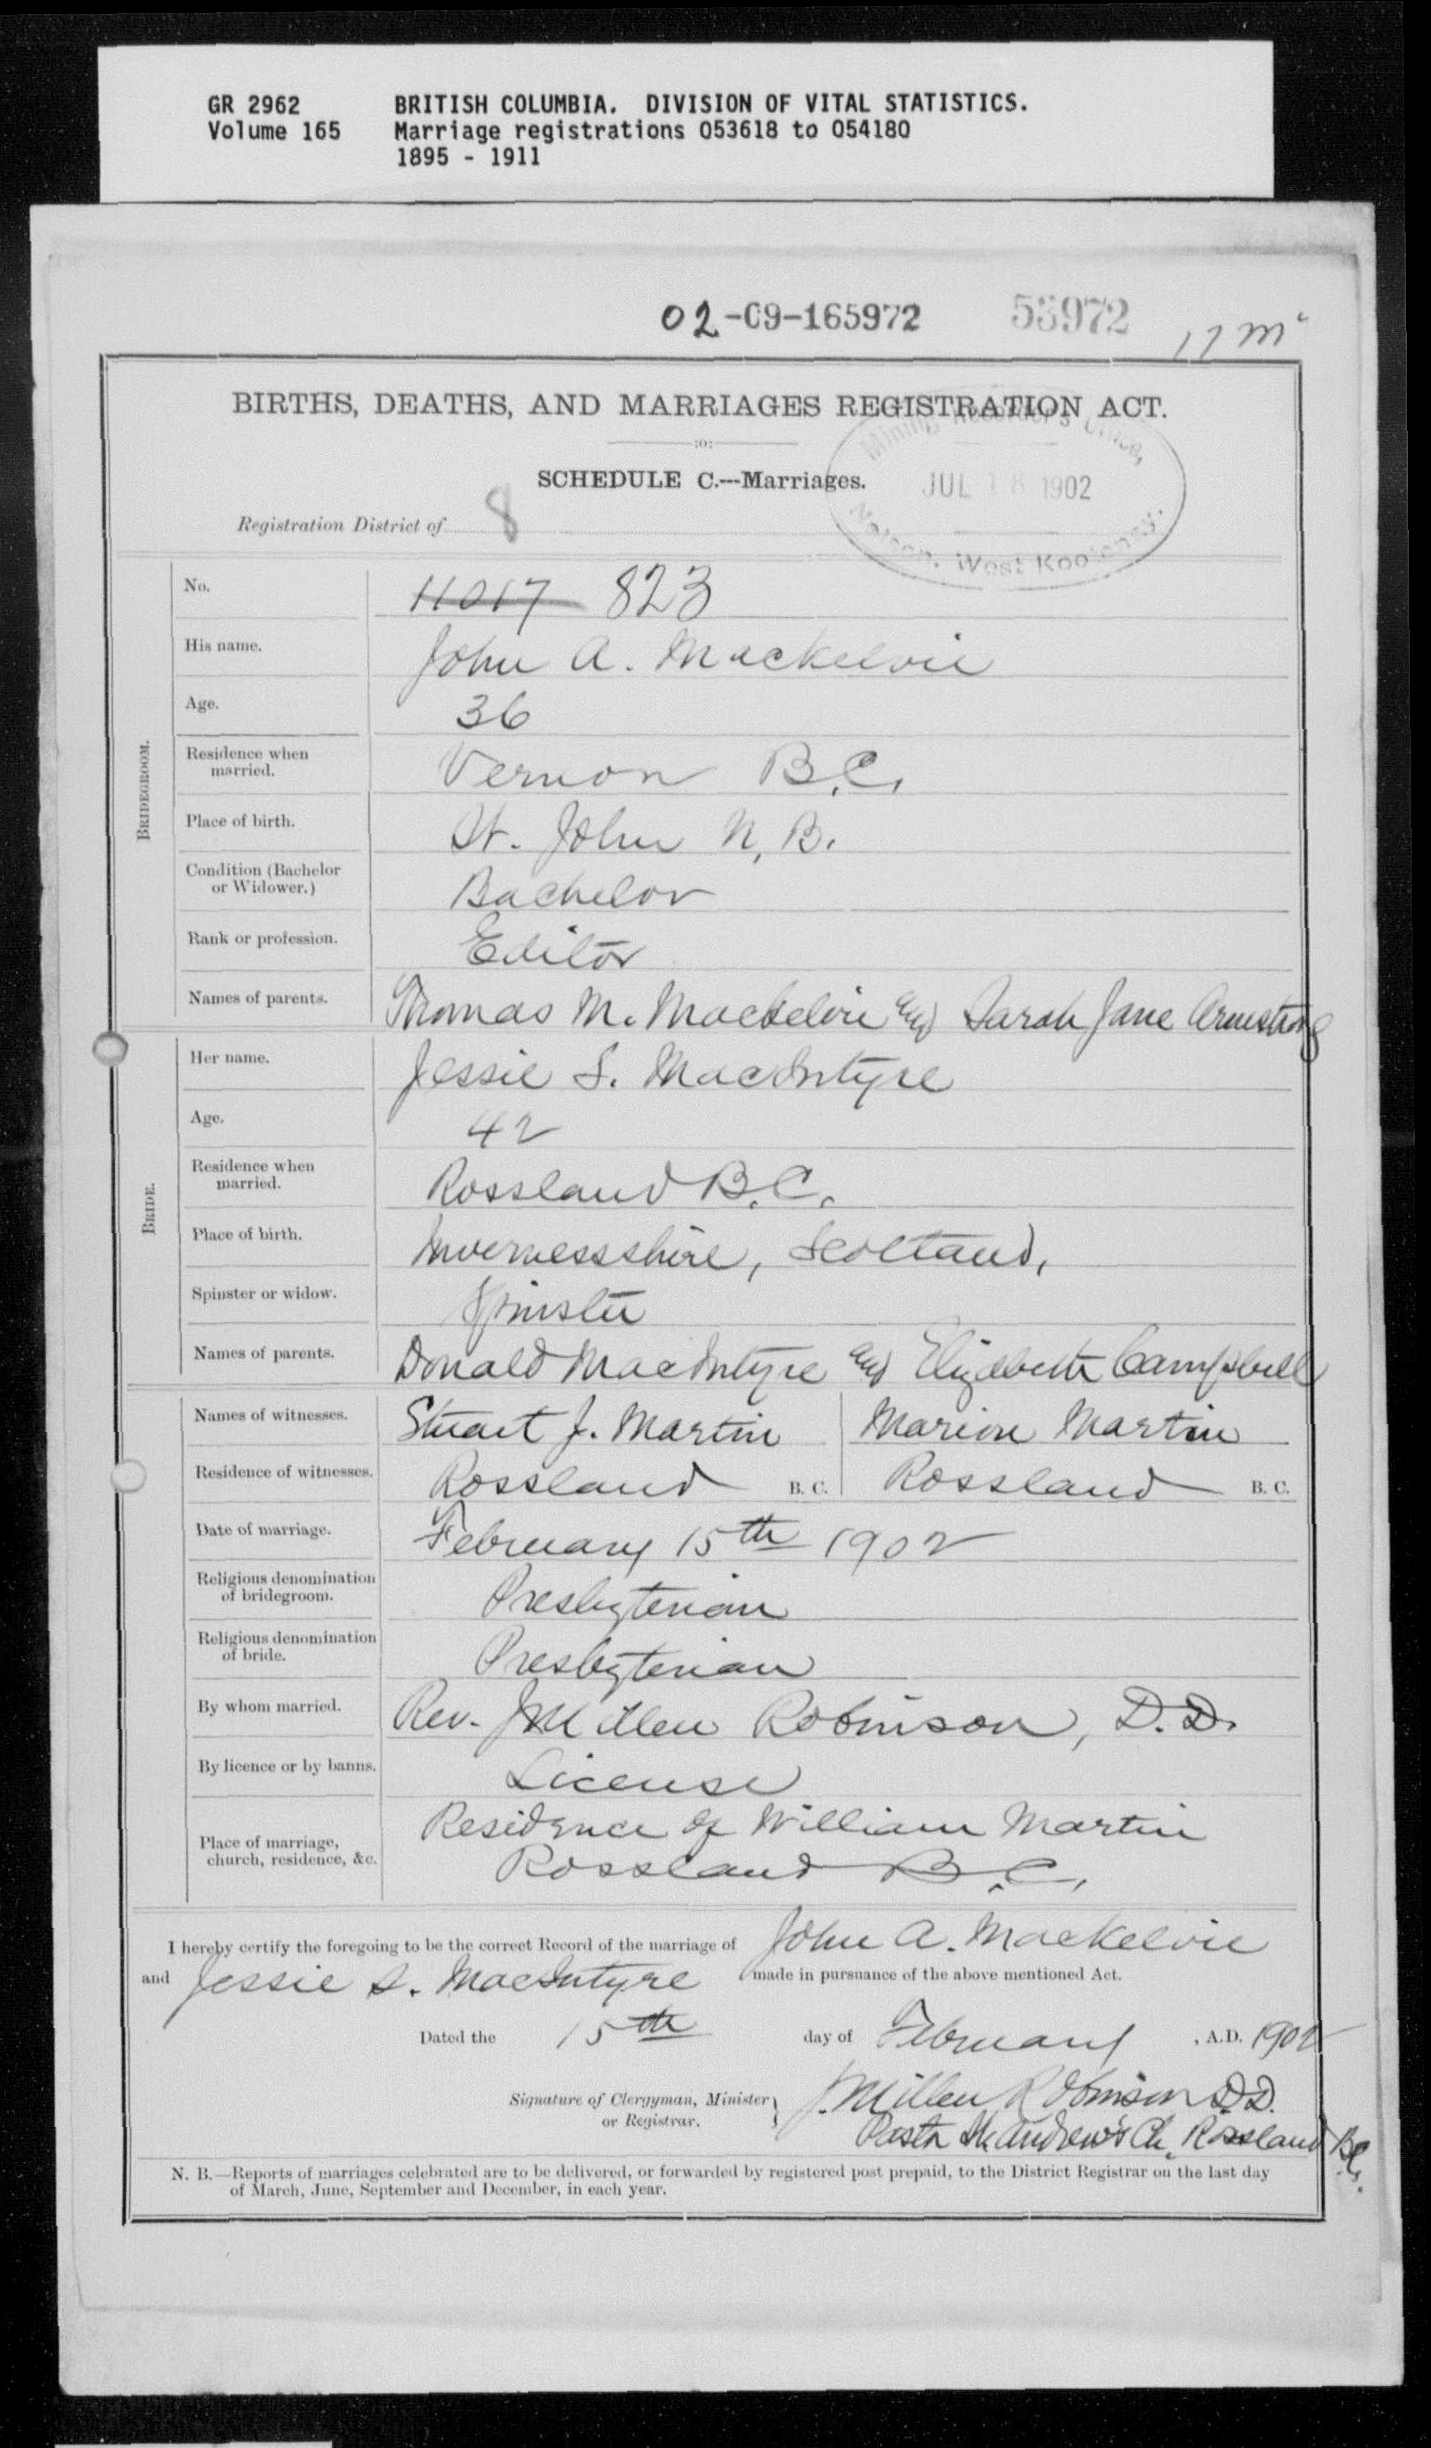 GR 2962 BRITISH COLUMBIA. DIVISION OF VITAL STATISTICS.
Volume 165 Marriage registrations 053618 to 054180
1895 - 1911
02-09-165972 53972
BIRTHS, DEATHS, AND MARRIAGES REGISTRATION ACT.
:o:
Mining Recorder's Office,
SCHEDULE C.---Marriages.
JUL 18 1902
Registration District of 8
Nelson, West Kootenay.
BRIDEGROOM.
No. 11017 823
His name. John A. Mackelvie
Age. 36
Residence when married. Vernon B.C.
Place of birth. St. John N.B.
Condition (Bachelor or Widower.) Bachelor
Rank or profession. Editor
Names of parents. Thomas M. Mackelvie and Sarah Jane Armstrong
BRIDE.
Her name. Jessie S. MacIntyre
Age. 42
Residence when married. Rossland B.C.
Place of birth. Invernessshire, Scotland,
Spinster or widow. Spinster
Names of parents. Donald MacIntyre and Elizabeth Campbell
Names of witnesses. Stuart J. Martin Marion Martin
Residence of witnesses. Rossland B. C. Rossland B. C.
Date of marriage. February 15th 1902
Religious denomination of bridegroom. Presbyterian
Religious denomination of bride. Presbyterian
By whom married. Rev. J Millen Robinson, D.D.
By licence or by banns. License
Place of marriage, church, residence, &c. Residence of William Martin
Rossland B.C.
I hereby certify the foregoing to be the correct Record of the marriage of John A. Mackelvie
and Jessie S. MacIntyre made in pursuance of the above mentioned Act.
Dated the 15th day of February , A.D. 1902
Signature of Clergyman, Minister or Registrar. } J. Millen Robinson D.D.
Pastor St. Andrew's Ch. Rossland B.C.
N. B.—Reports of marriages celebrated are to be delivered, or forwarded by registered post prepaid, to the District Registrar on the last day
of March, June, September and December, in each year.